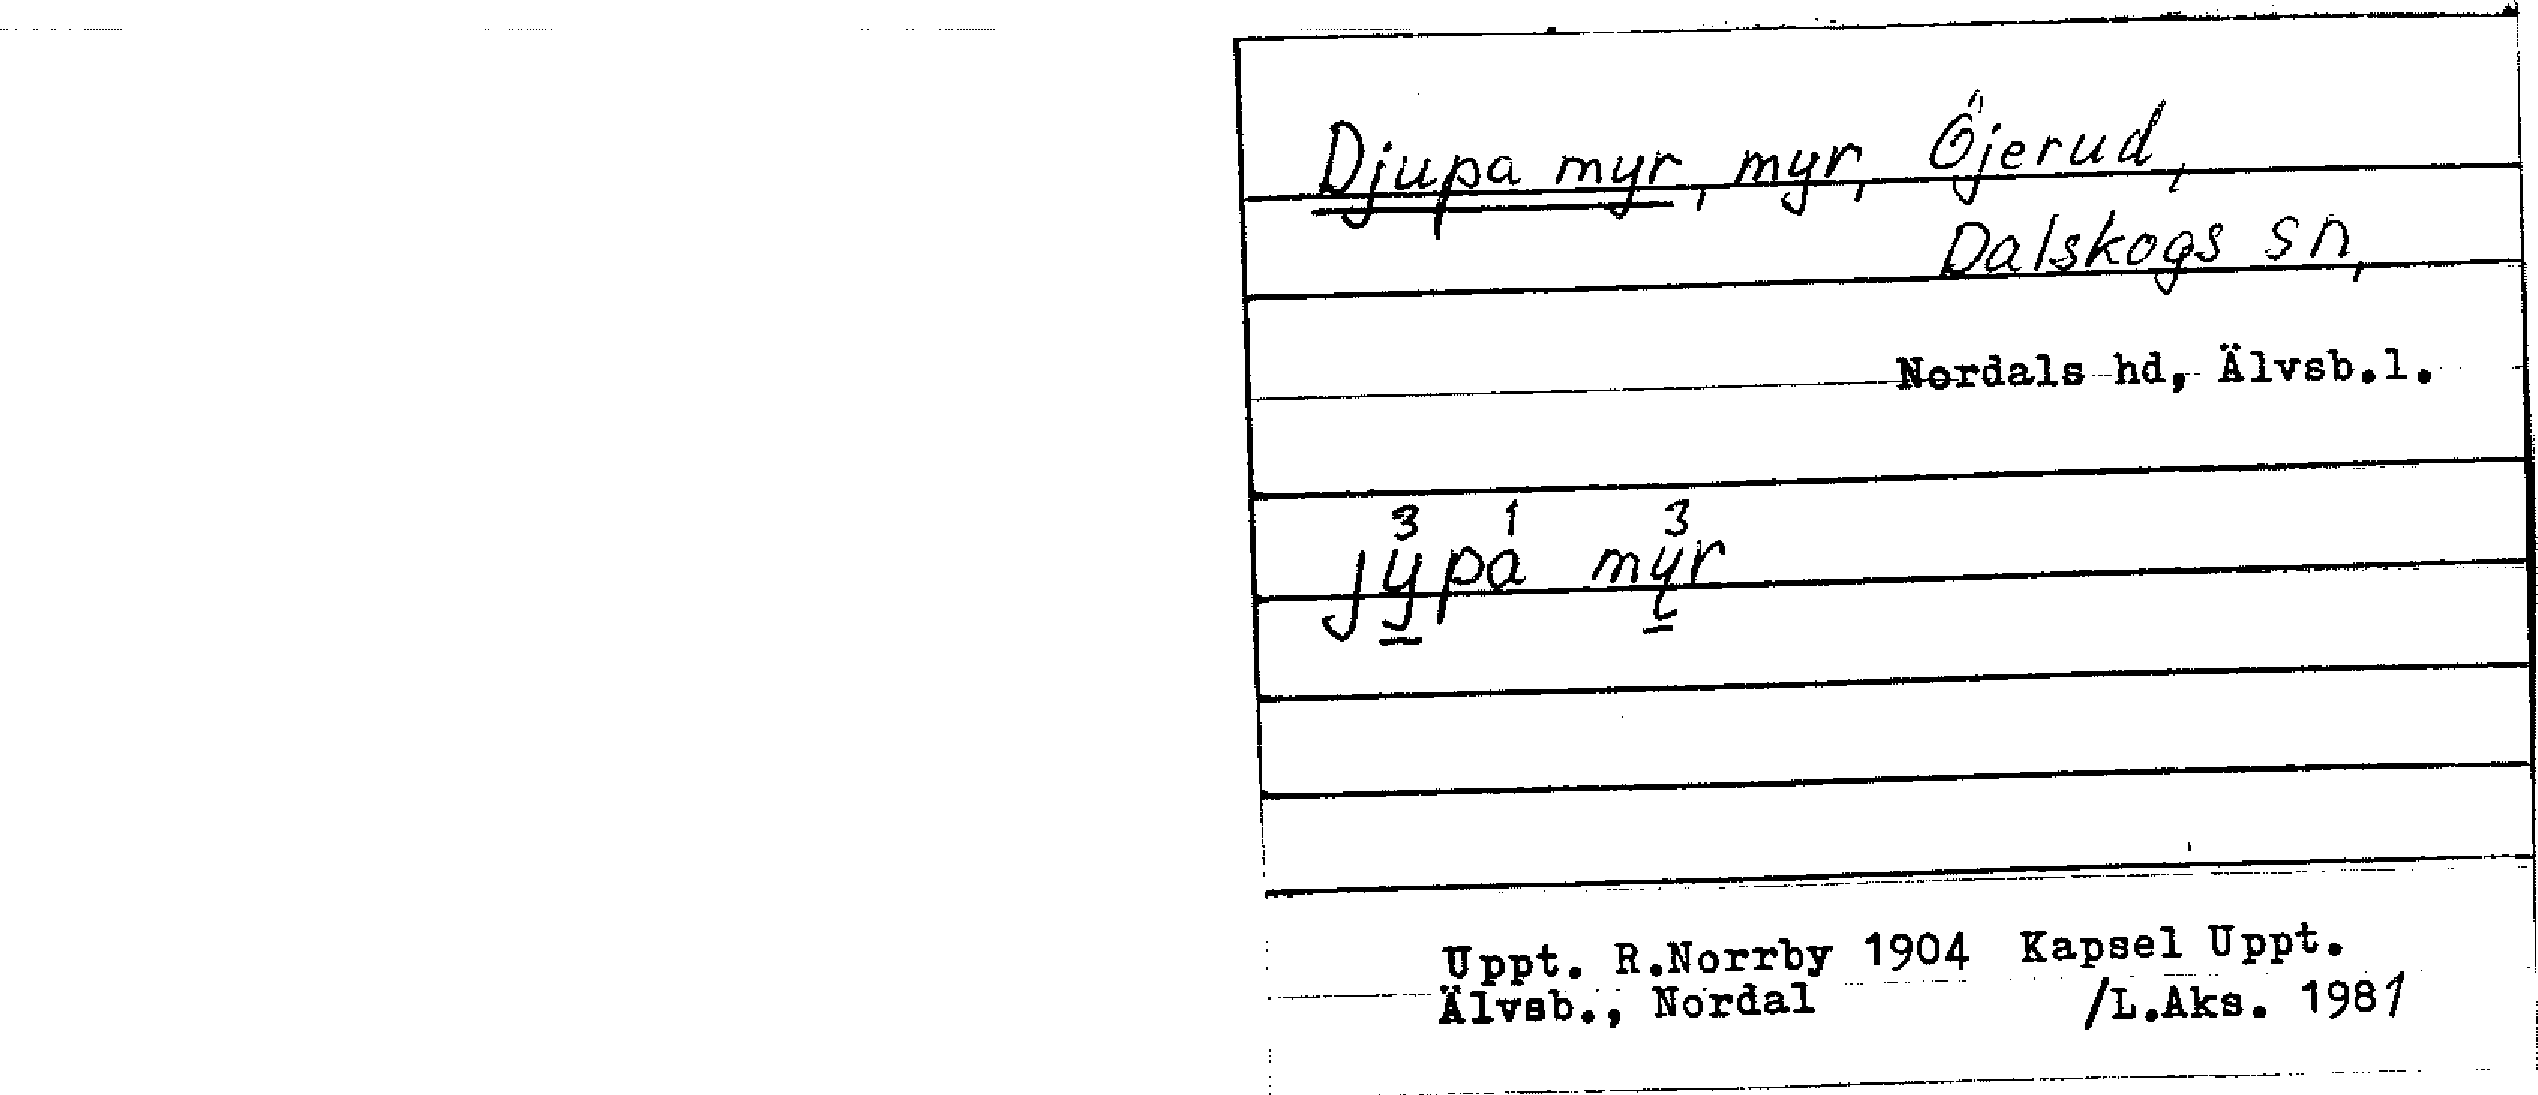 Djupa myr, myr, Öjerud,
Dalskogs sn,
Nordals hd, Älvsb.l.
3 1 3
jypa myr
Uppt. R.Norrby 1904 Kapsel Uppt.
Älvsb., Nordal /L.Aks. 1981